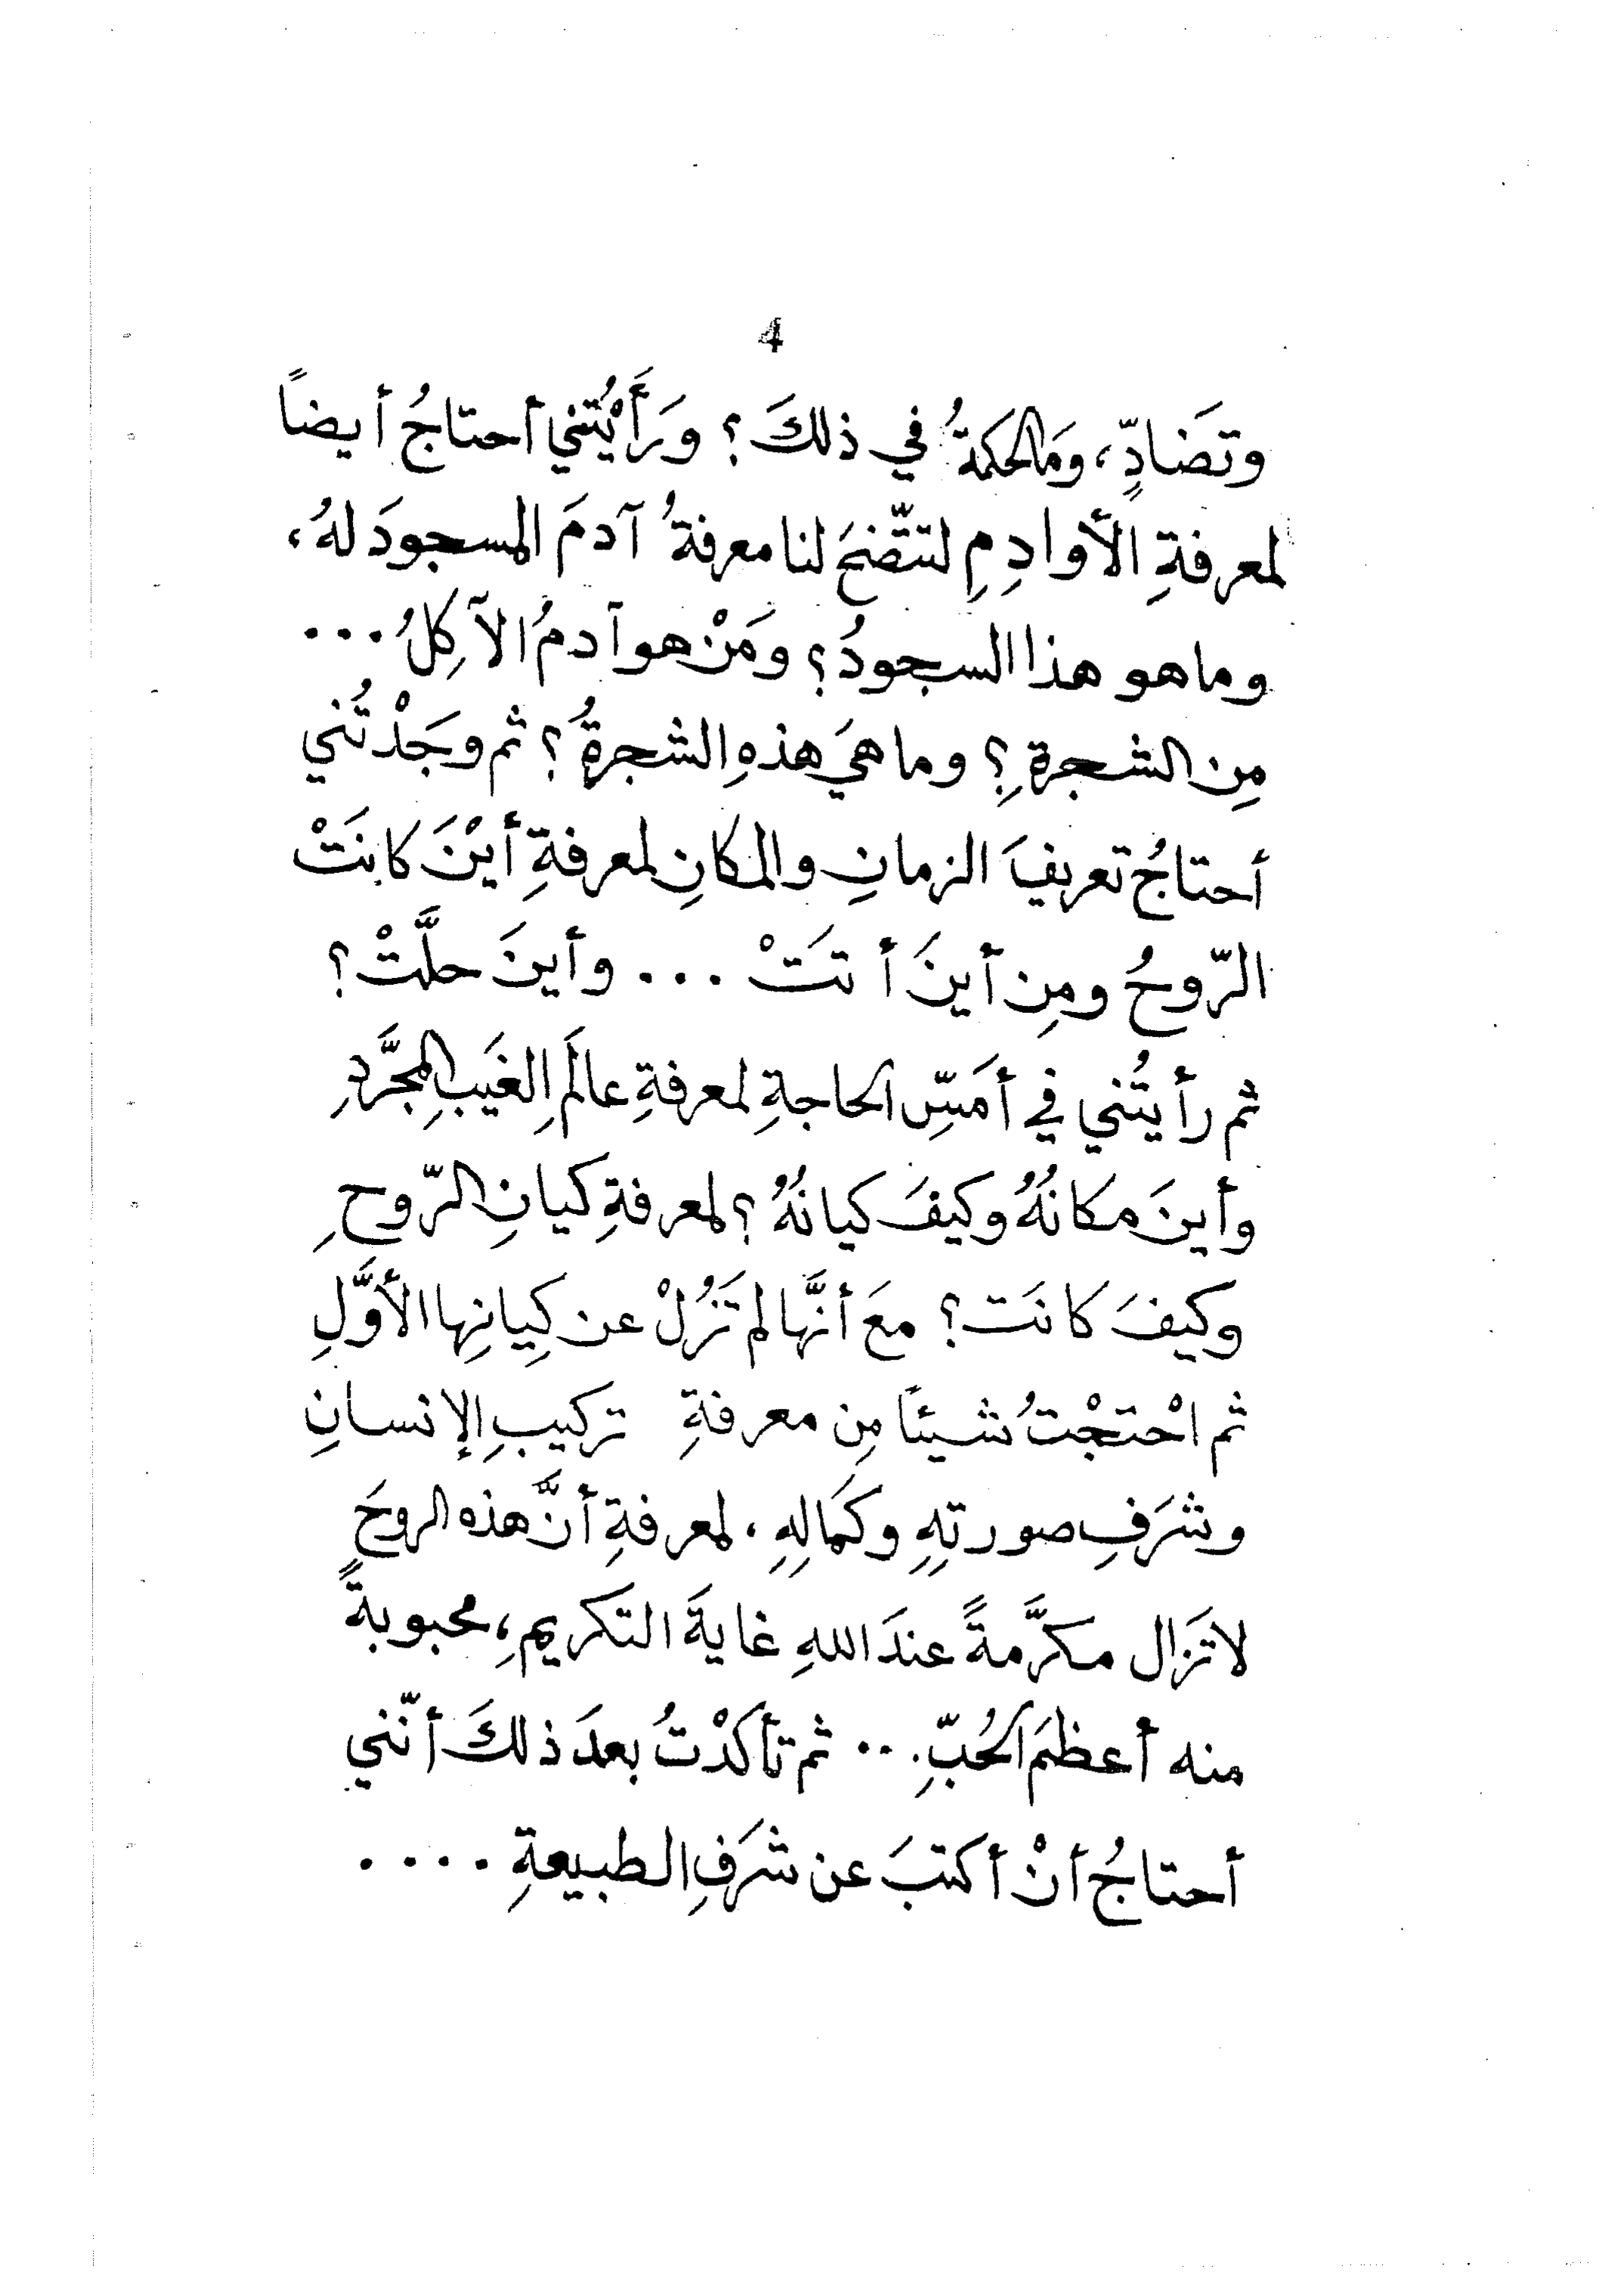 4
وتَضَادٍّ، وَمَالحكمةُ في ذلكَ؟ ورَأَيْتُني أحتاجُ أيضاً
لمعرفةِ الأوادِمِ لتتّضحَ لنا معرفةُ آدمَ المسجودَ لهُ،
وما هو هذا السجودُ؟ ومَنْ هو آدمُ الآكِلُ ...
مِن الشجرةِ؟ وما هيَ هذهِ الشجرةُ؟ ثم وجَدْتُني
أحتاجُ تعريفَ الزمانِ والمكانِ لمعرفةِ أيْنَ كانَتْ
الرّوحُ ومِن أينَ أتَتْ ... وأينَ حلَّتْ؟
ثم رأيتُني في أمَسِّ الحاجةِ لمعرفةِ عالَمِ الغَيبِ المجَّردِ
وأينَ مكانُهُ وكيفَ كيانُهُ؟ لمعرفةِ كيانِ الرّوحِ
وكيفَ كانَت؟ معَ أنَّها لم تَزُلْ عن كِيانِها الأوَّلِ
ثم احْتجْتُ شيئاً مِن معرفةِ تركيبِ الإنسانِ
وشرَفِ صورتِهِ وكمَالِهِ، لمعرفةِ أنَّ هذه الروحَ
لا تَزال مكرَّمةً عندَ اللهِ غايةَ التكريمِ، محبوبةً
منه أعظمَ الحُبِّ... ثم تأكدْتُ بعدَ ذلكَ أنّني
أحتاجُ أنْ أكتبَ عن شرَفِ الطبيعةِ ....